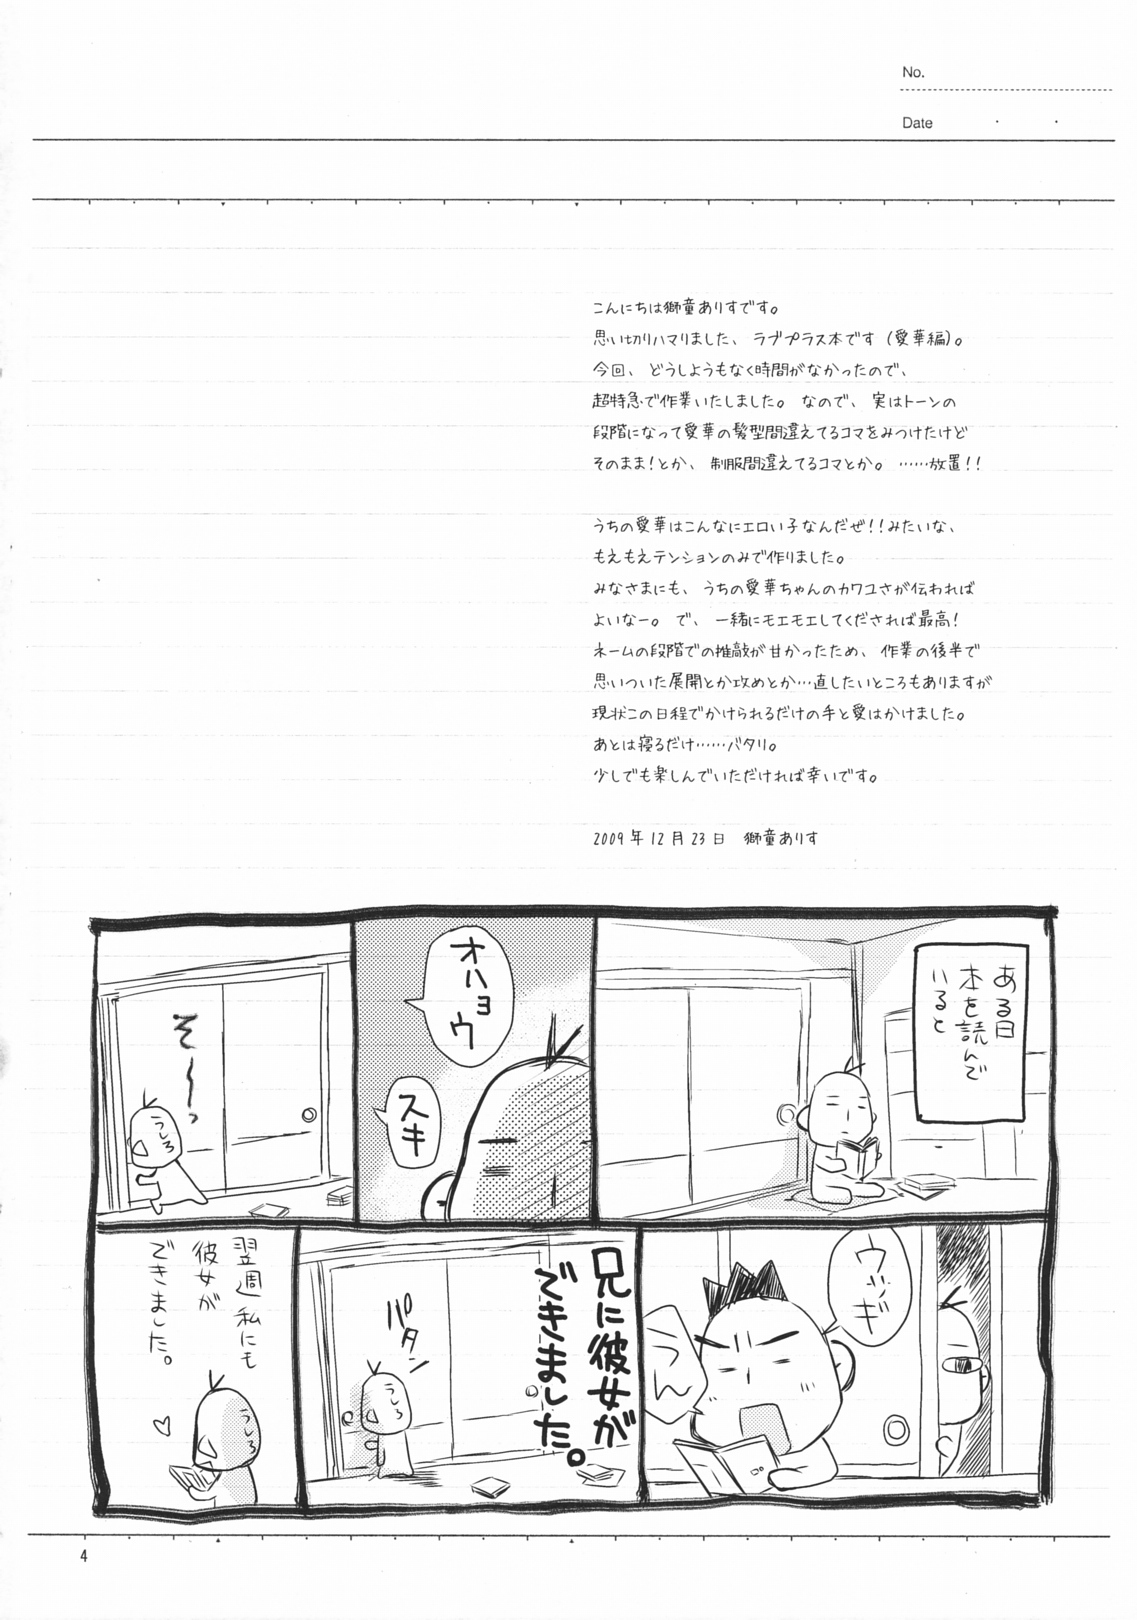 No.
Date
こんにちは獅童ありすです。
思い切りハマりました、ラブプラス本です(愛華編)。
今回、どうしようもなく時間がなかったので、
超特急で作業いたしました。なので、実はトーンの
段階になって愛華の髪型間違えてるコマをみつけたけど
そのまま!とか、制服間違えてるコマとか。……放置!!
うちの愛華はこんなにエロい子なんだぜ!!みたいな、
もえもえテンションのみで作りました。
みなさまにも、うちの愛華ちゃんのカワユさが伝われば
よいなー。で、一緒にモエモエしてくだされば最高!
ネームの段階での推敲が甘かったため、作業の後半で
思いついた展開とか攻めとか…直したいところもありますが
現状この日程でかけられるだけの手と愛はかけました。
あとは寝るだけ……バタリ。
少しでも楽しんでいただければ幸いです。
2009年12月23日 獅童ありす
ある日
本を読んで
いると
オハヨウ
スキ
そ〜っ
うしろ
ウッギ
うん
兄に彼女が
できました。
パタン
うしろ
翌週 私にも
彼女が
できました。
うしろ
4